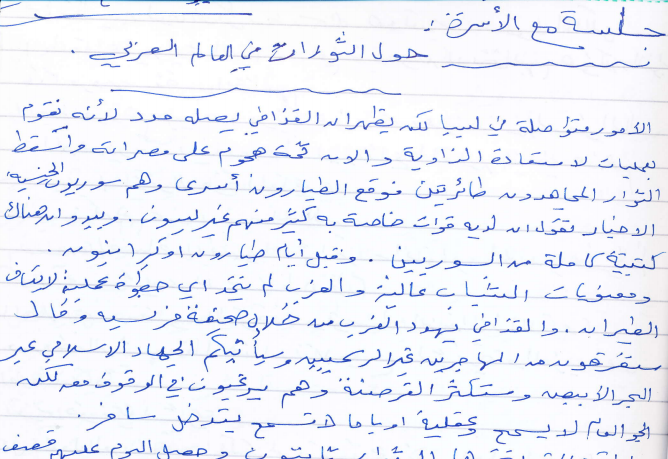 جلسة مع الأسرة :
حول الثورات في العالم العربي .
الأمور متواصلة في ليبيا لكن يظهر ان القذافي يصله مدد لأنه يقوم
بعمليات لاستعادة الزاوية والان ثمة هجوم على مصراتة وأسقط
الثوار المجاهدون طائرتين فوقع الطيارون أسرى وهم سوريون الجنسية،
الاخبار تقول ان لديه قوات خاصة به كثير منهم غير ليبيون . ويبدو ان هناك
كتيبة كاملة من السوريين . وقبل أيام طيارون اوكرانيون .
ومعنويات الشباب عالية والغرب لم يتخذ اي خطوة عملية لإيقاف
الطيران . والقذافي يهدد الغرب من خلال صحيفة فرنسية وقال
ستغرقون من المهاجرين غير الرسميين وسيأتيكم الجهاد الاسلامي عبر
البحر الأبيض وستكثر القرصنة وهم يرغبون في الوقوف معه لكن
الجو العام لا يسمح وعقلية اوباما لا تسمح بتدخل سافر .
وحصل اليوم عليهم قصف